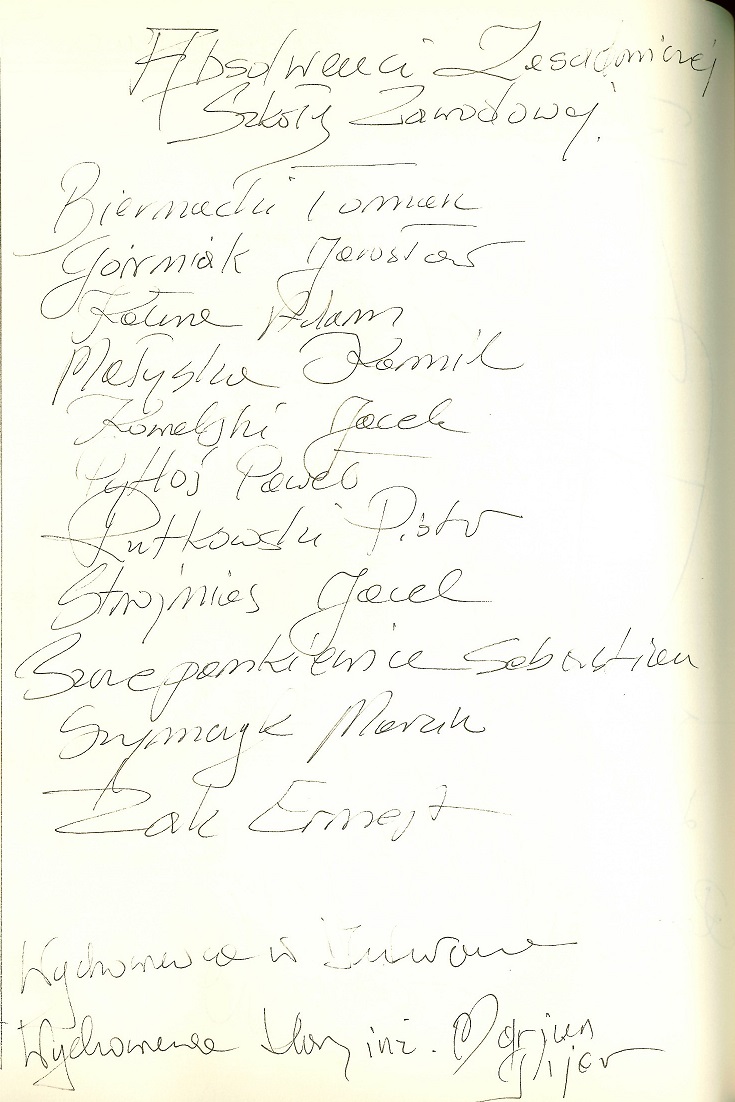 Absolwenci Zasadniczej
Szkoły Zawodowej
Biernacki Tomasz
Górniak Jarosław
Kaluza Adam
Małyska Kamil
Kowalski Jacek
Pyttoś Paweł
Rutkowski Piotr
Strojnieś Jacek
Szczepankiewicz Sebastian
Szymczyk Marcin
Żak Ernest
Wychowawca w
Wychowawca klasy inż. Marian